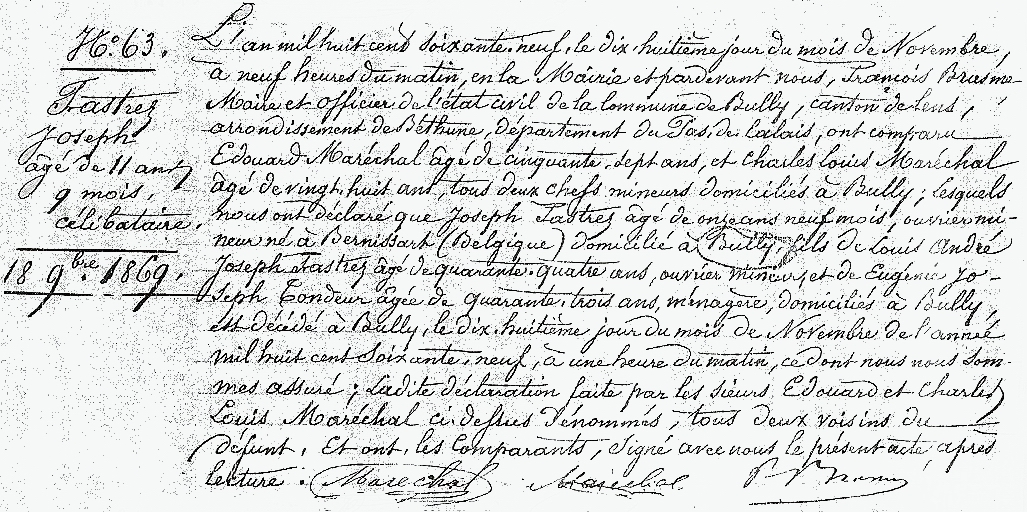 N.º 63.
Fastrez
Joseph
âgé de 11 ans
9 mois,
célibataire.
18 9bre 1869.
L'an mil huit cent soixante-neuf, le dix-huitième jour du mois de Novembre,
à neuf heures du matin, en la Mairie et pardevant nous, François Brasme
Maire et officier de l'état civil de la commune de Bully, canton de Lens,
arrondissement de Béthune, département du Pas-de-Calais, ont comparu
Edouard Maréchal âgé de cinquante-sept ans, et Charles Louis Maréchal
âgé de vingt-huit ans, tous deux chefs mineurs domiciliés à Bully; lesquels
nous ont déclaré que Joseph Fastrez âgé de onze ans neuf mois, ouvrier mi-
neur né à Bernissart (Belgique) domicilié à Bully, fils de Louis André
Joseph Fastrez âgé de quarante-quatre ans, ouvrier mineur, et de Eugénie Jo-
seph Tondeur âgée de quarante-trois ans, ménagère, domiciliés à Bully,
est décédé à Bully, le dix-huitième jour du mois de Novembre de l'année
mil huit cent soixante-neuf, à une heure du matin, ce dont nous nous som-
mes assuré; Ladite déclaration faite par les sieurs Edouard et Charles
Louis Maréchal ci-dessus dénommés, tous deux voisins du
défunt. Et ont, les comparants, signé avec nous le présent acte après
lecture. Maréchal Maréchal